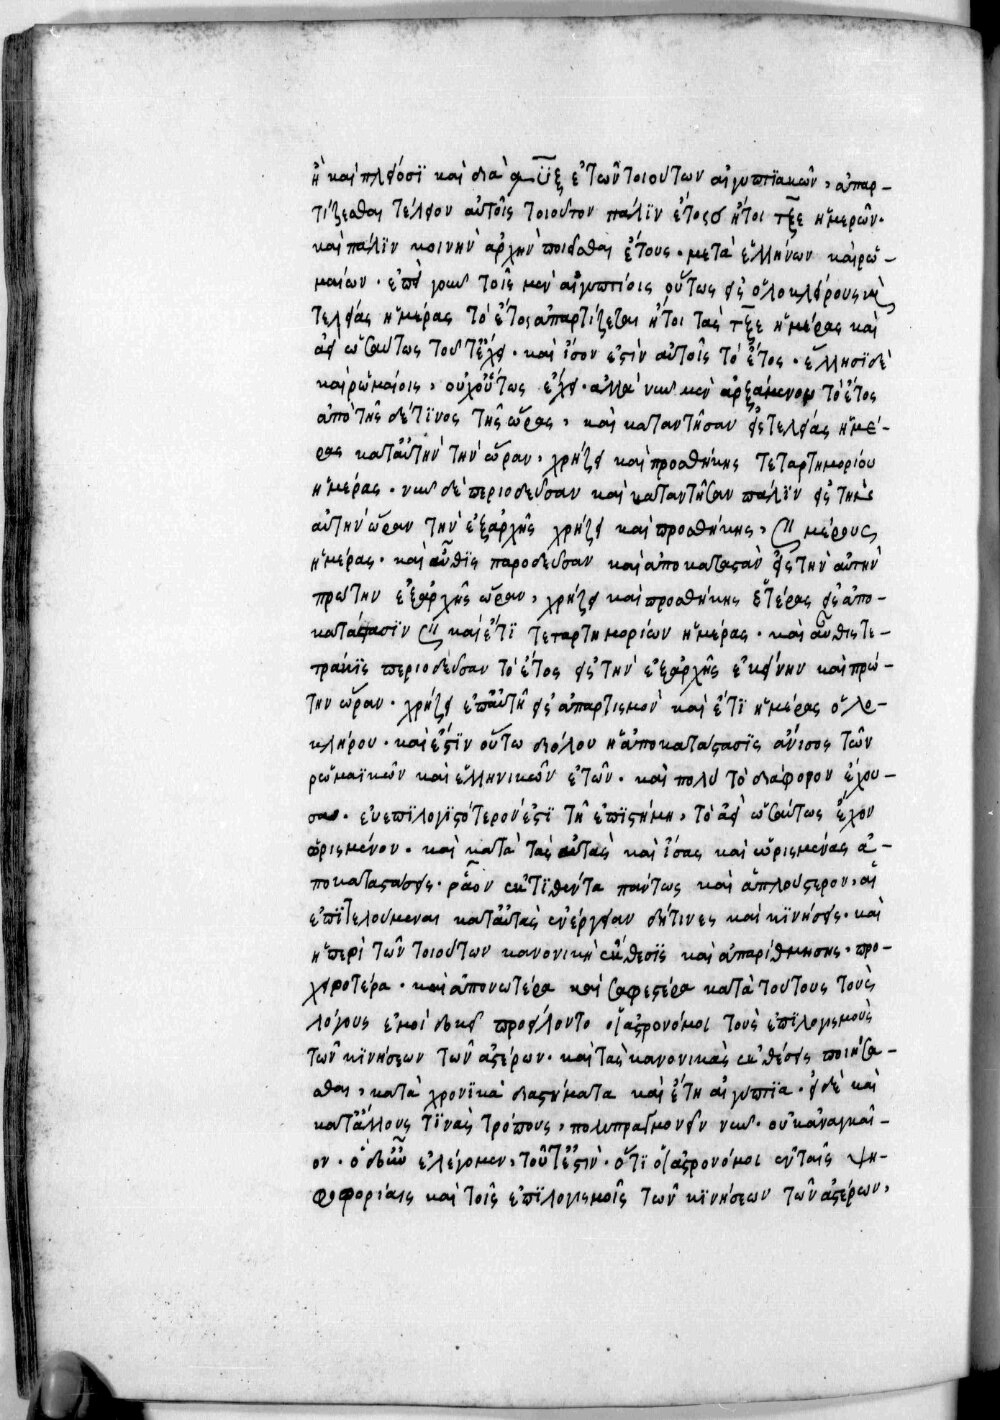 ἢ καὶ πλείοσϊ καὶ διὰ ͵αυξ ἐτῶν τοιούτων αἰγυπτϊακῶν, ἀπαρ-
τίζεσθαι τέλειον αὐτοῖς τοιοῦτον πάλϊν ἔτος ἤτοι τξε ἡμερῶν·
καὶ πάλϊν κοινὴν ἀρχὴν ποιεῖσθαι ἔτους· μετὰ ἑλλήνων καὶ ρω-
μαίων· ἐπεὶ γοῦν τοῖς μὲν αἰγυπτίοις οὕτως εἰς ὁλοκλήρους καὶ
τελείας ἡμέρας τὸ ἔτος ἀπαρτίζεται ἤτοι τὰς τξε ἡμέρας καὶ
ἀεὶ ὡσαύτως τοῦτ' ἔχει· καὶ ἴσον ἐστὶν αὐτοῖς τὸ ἔτος· ἕλλησϊ δὲ
καὶ ρωμαίοις, οὐχ οὕτως ἔχει· ἀλλὰ νῦν μὲν ἀρξάμενον τὸ ἔτος
ἀπὸ τῆς δέ τϊνος τῆς ὥρας, καὶ καταντῆσαν εἰς τελείας ἡμέ-
ρας κατ' αὐτὴν τὴν ὥραν, χρήζει καὶ προσθήκης τεταρτημορίου
ἡμέρας· νῦν δὲ περιοδεῦσαν καὶ καταντῆσαν πάλϊν εἰς τὴν
αὐτὴν ὥραν τὴν ἐξαρχῆς χρήζει καὶ προσθήκης, μέρους
ἡμέρας· καὶ αὖθϊς παροδεῦσαν καὶ ἀποκαταστὰν εἰς τὴν αὐτὴν
πρώτην ἐξαρχῆς ὥραν, χρήζει καὶ προσθήκης ἑτέρας εἰς ἀπο-
κατάστασϊν καὶ ἔτϊ τεταρτημορίων ἡμέρας· καὶ αὖθις τε-
τράκϊς περιοδεῦσαν τὸ ἔτος εἰς τὴν ἐξαρχῆς ἐκείνην καὶ πρώ-
την ὥραν· χρήζει ἐπ' αὐτῇ εἰς ἀπαρτισμὸν καὶ ἔτϊ ἡμέρας ὁλο-
κλήρου· καὶ ἔστϊν οὕτω διόλου ἡ ἀποκατάστασϊς ἄνισος τῶν
ρωμαϊκῶν καὶ ἑλληνικῶν ἐτῶν· καὶ πολὺ τὸ διάφορον ἔχου-
σα· εὐεπιλογϊστότερον ἐστϊ τῇ ἐπϊστήμῃ, τὸ ἀεὶ ὡσαύτως ἔχον
ὡρισμένον· καὶ κατὰ τὰς αὐτὰς καὶ ἴσας καὶ ὡρισμένας ἀ-
ποκαταστάσεις· ρᾷον ἐκτϊθέντα πάντως καὶ ἁπλούστερον, αἱ
ἐπϊτελούμεναι κατ' αὐτὰς ἐνέργειαι δή τινες καὶ κϊνήσεις· καὶ
ἡ περὶ τῶν τοιούτων κανονικὴ ἔκθεσϊς καὶ ἀπαρίθμησης, προ-
χειροτέρα· καὶ ἀπονωτέρα καὶ σαφεστέρα κατὰ τούτους τοὺς
λόγους ἐμοὶ δοκεῖ προείλοντο οἱ ἀστρονόμοι τοὺς ἐπϊλογισμοὺς
τῶν κϊνήσεων τῶν ἀστέρων· καὶ τὰς κανονικὰς ἐκθέσεις ποιήσα-
σθαι, κατὰ χρονϊκὰ διαστήματα καὶ ἔτη αἰγύπτϊα· εἰ δὲ καὶ
κατ' ἄλλους τϊνὰς τρόπους, πολυπραγμονεῖν νῦν· οὐκ ἀναγκαῖ-
ον· ὁ δ' οὖν ἐλέγομεν, τοῦτ' ἔστϊν· ὅτϊ οἱ ἀστρονόμοι ἐν ταῖς ψη-
φοφορίαις καὶ τοῖς ἐπϊλογισμοῖς τῶν κϊνήσεων τῶν ἀστέρων,